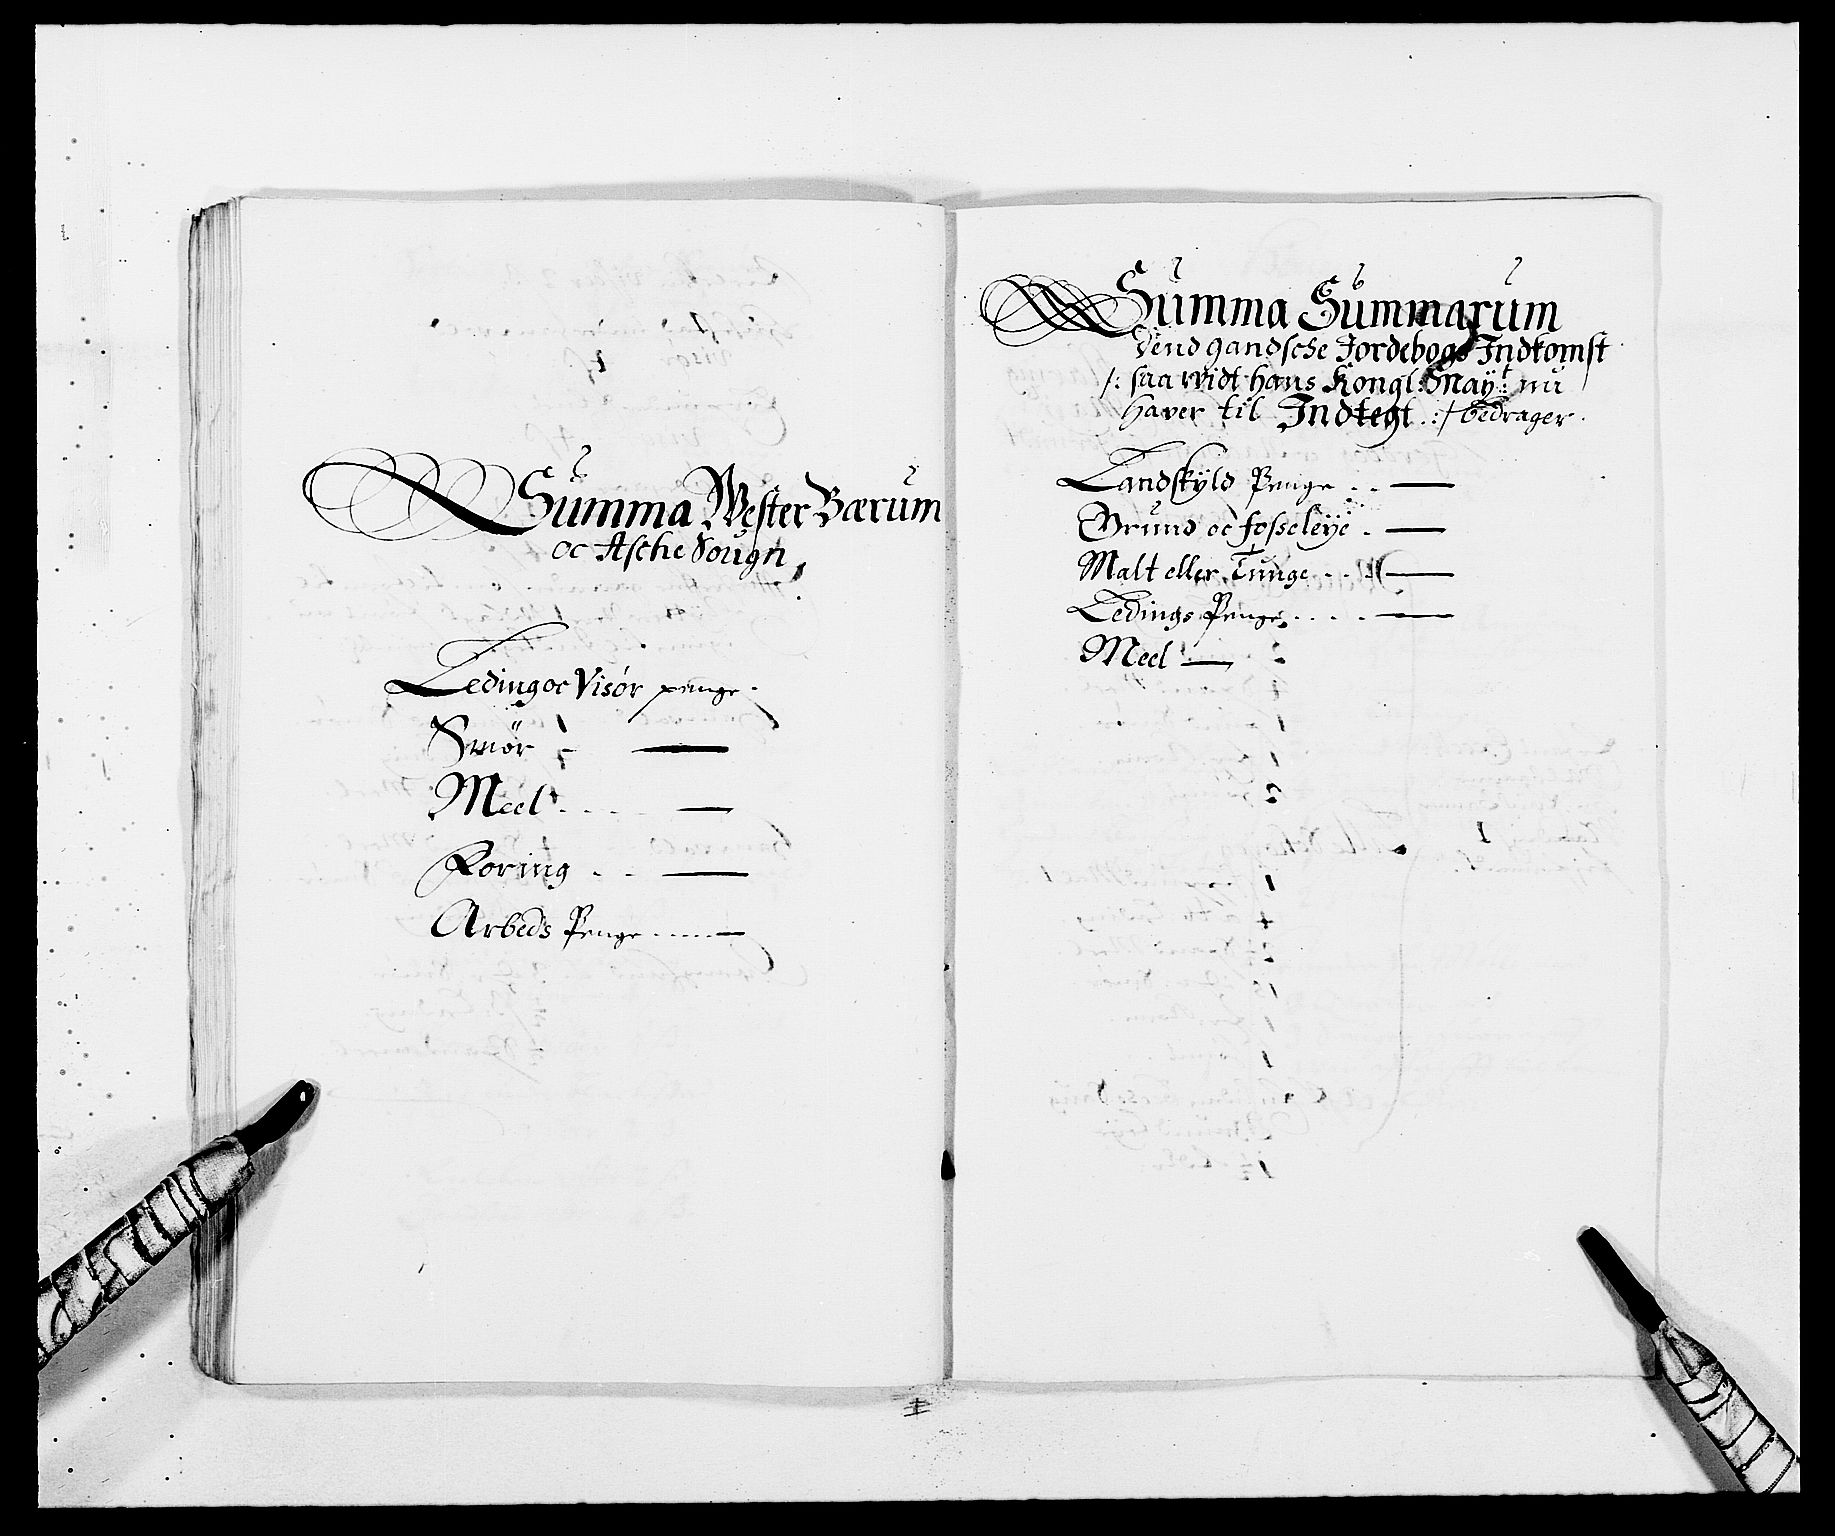 Summa Wester Bærum
oc Asche Sougn
Leding oc Visør penge
Smør
Meel
Foring
Arbeds Penge
Summa Summarum
dend gandsche Jordebogs Indkomst
/: saa vidt hans Kongl: May:t nu
haver til Indtegt :/ bedrager
Landskyld Penge
Grund oc fosseleye
Malt eller Tunge
Ledings Penge
Meel